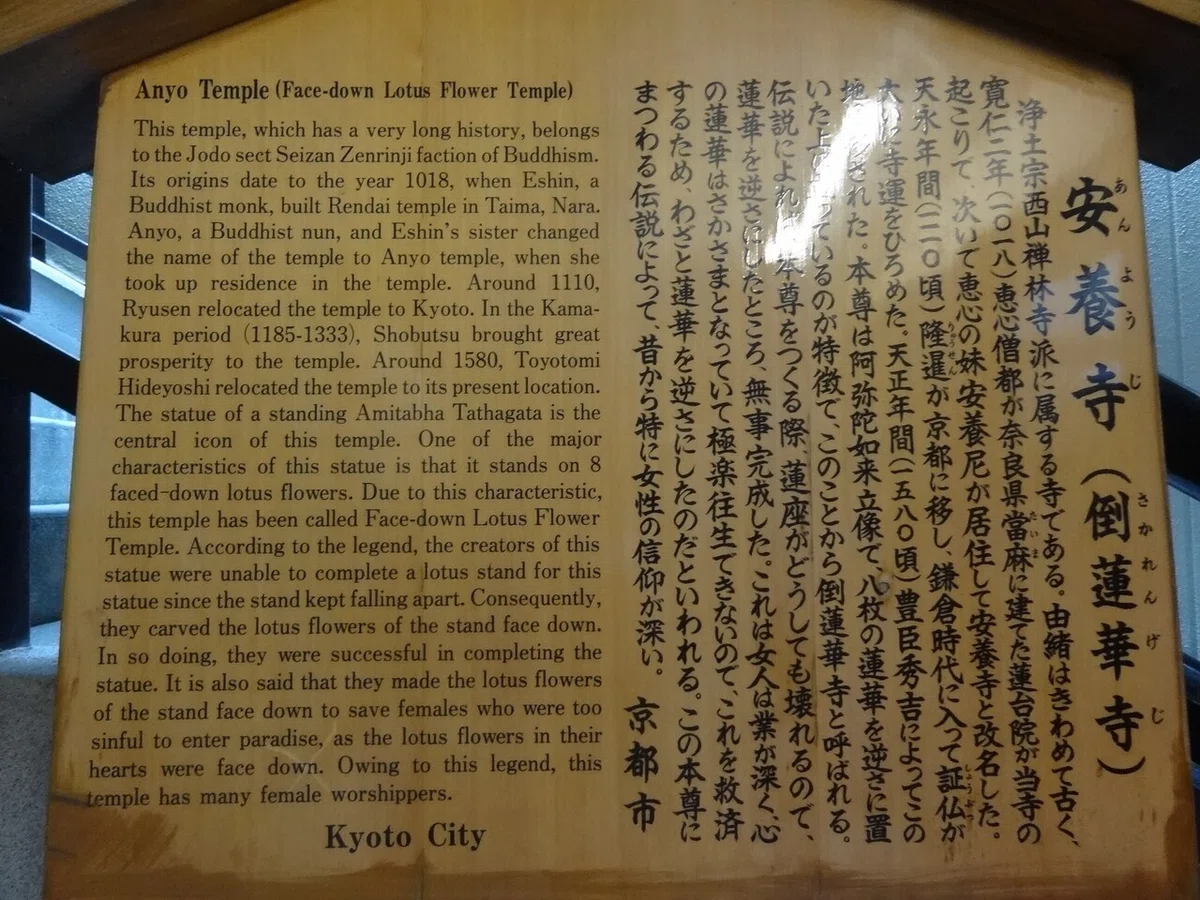 Anyo Temple (Face-down Lotus Flower Temple)
This temple, which has a very long history, belongs
to the Jodo sect Seizan Zenrinji faction of Buddhism.
Its origins date to the year 1018, when Eshin, a
Buddhist monk, built Rendai temple in Taima, Nara.
Anyo, a Buddhist nun, and Eshin's sister changed
the name of the temple to Anyo temple, when she
took up residence in the temple. Around 1110,
Ryusen relocated the temple to Kyoto. In the Kama-
kura period (1185-1333), Shobutsu brought great
prosperity to the temple. Around 1580, Toyotomi
Hideyoshi relocated the temple to its present location.
The statue of a standing Amitabha Tathagata is the
central icon of this temple. One of the major
characteristics of this statue is that it stands on 8
faced-down lotus flowers. Due to this characteristic,
this temple has been called Face-down Lotus Flower
Temple. According to the legend, the creators of this
statue were unable to complete a lotus stand for this
statue since the stand kept falling apart. Consequently,
they carved the lotus flowers of the stand face down.
In so doing, they were successful in completing the
statue. It is also said that they made the lotus flowers
of the stand face down to save females who were too
sinful to enter paradise, as the lotus flowers in their
hearts were face down. Owing to this legend, this
temple has many female worshippers.
Kyoto City
安養寺(倒蓮華寺)
あんようじ さかれんげじ
浄土宗西山禅林寺派に属する寺である。由緒はきわめて古く、
寛仁二年(一〇一八)恵心僧都が奈良県當麻に建てた蓮台院が当寺の
たいま
起こりで、次いで恵心の妹安養尼が居住して安養寺と改名した。
天永年間(一一一〇頃)隆暹が京都に移し、鎌倉時代に入って証仏が
りゅうせん しょうぶつ
大いに寺運をひろめた。天正年間(一五八〇頃)豊臣秀吉によってこの
地 された。本尊は阿弥陀如来立像で、八枚の蓮華を逆さに置
いた上に立っているのが特徴で、このことから倒蓮華寺と呼ばれる。
伝説によれば、本尊をつくる際、蓮座がどうしても壊れるので、
蓮華を逆さにしたところ、無事完成した。これは女人は業が深く、心
の蓮華はさかさまとなっていて極楽往生できないので、これを救済
するため、わざと蓮華を逆さにしたのだといわれる。この本尊に
まつわる伝説によって、昔から特に女性の信仰が深い。 京都市